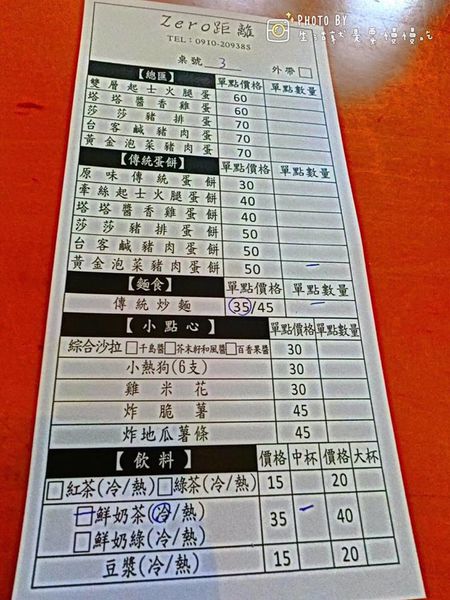 PHOTO BY
生活就是要慢慢吃
Zero距離
TEL：0910-209385
桌號 3 外帶□
【總匯】 單點價格 單點數量
雙層起士火腿蛋 60
塔塔醬香雞蛋 60
莎莎豬排蛋 70
台客鹹豬肉蛋 70
黃金泡菜豬肉蛋 70
【傳統蛋餅】 單點價格 單點數量
原味傳統蛋餅 30
牽絲起士火腿蛋餅 40
塔塔醬香雞蛋餅 40
莎莎豬排蛋餅 50
台客鹹豬肉蛋餅 50
黃金泡菜豬肉蛋餅 50 一
【麵食】 單點價格 單點數量
傳統炒麵 35/45 一
【小點心】 單點價格 單點數量
綜合沙拉 □千島醬□芥末籽和風醬□百香果醬 30
小熱狗(6支) 30
雞米花 30
炸脆薯 45
炸地瓜薯條 45
【飲料】 價格 中杯 價格 大杯
□紅茶(冷/熱) □綠茶(冷/熱) 15 20
□鮮奶茶(冷/熱) 35 一 40
□鮮奶綠(冷/熱)
豆漿(冷/熱) 15 20